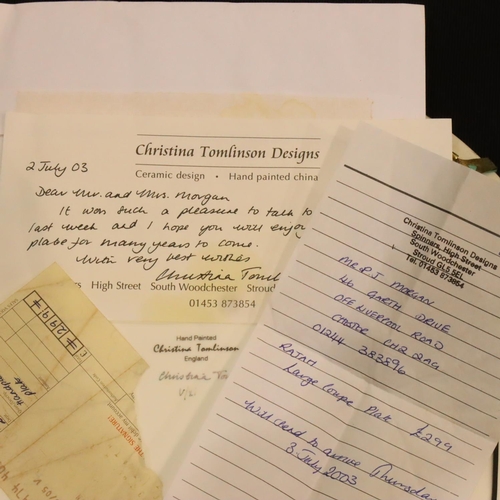 Christina Tomlinson Designs
Ceramic design • Hand painted china
2 July 03
Dear Mr. and Mrs. Morgan
It was such a pleasure to talk to
last week and I hope you will enjoy
plate for many years to come.
With very best wishes
Christina Toml
rs High Street South Woodchester Stroud
01453 873854
Hand Painted
Christina Tomlinson
England
Christina To
Christina Tomlinson Designs
Spinners, High Street
South Woodchester
Stroud GL5 5EL
Tel. 01453 873854
Mr P.J. MORGAN
46 GARTH DRIVE
OFF LIVERPOOL ROAD
CHESTER CH2 2AG
01244 383896
RATAH
Large Coupe Plate £299
Will send to arrive Thursda
3 July 2003
£299
plate
THE SIGNATURE